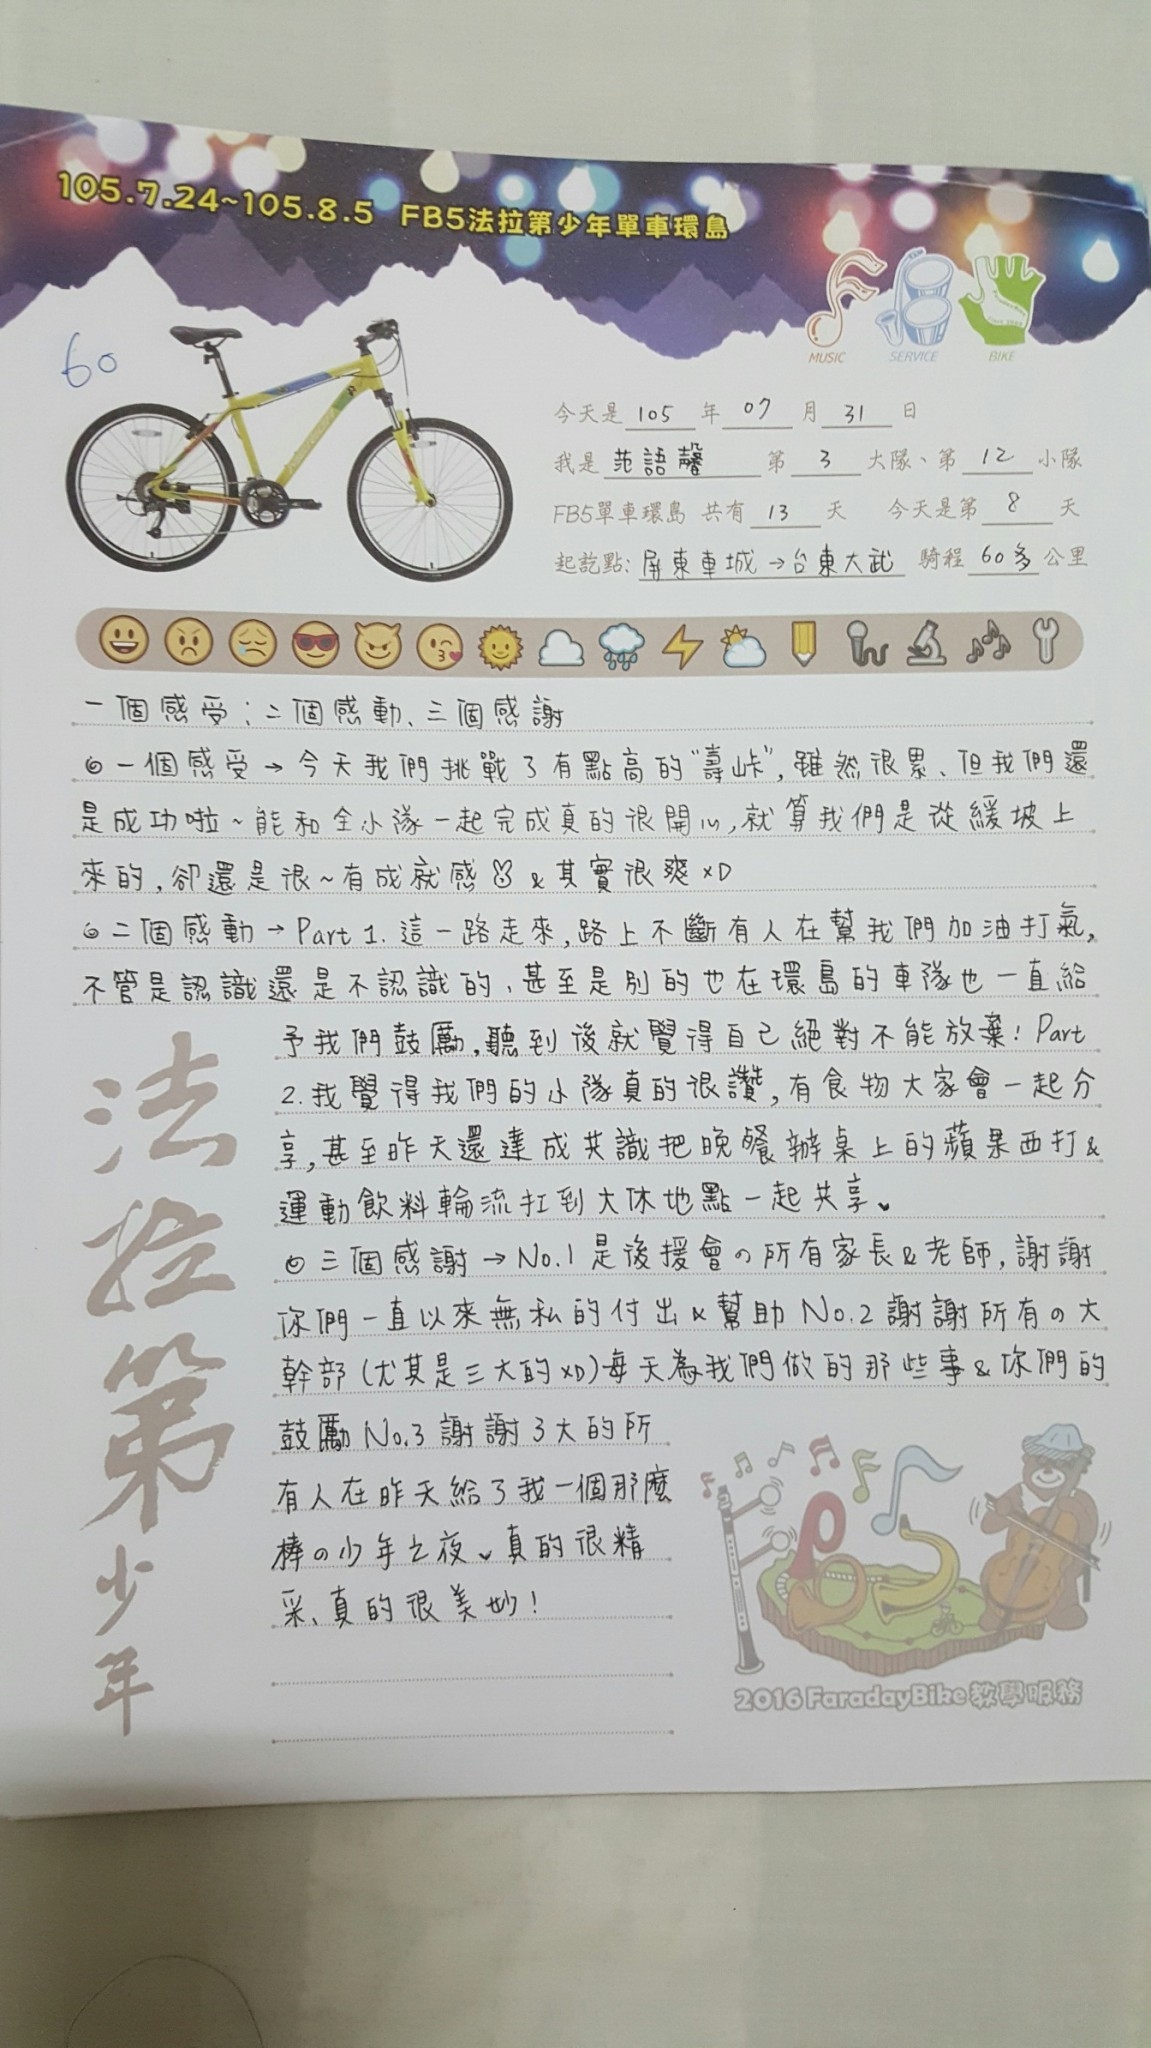 105.7.24~105.8.5 FB5法拉第少年單車環島
MUSIC SERVICE BIKE
60
今天是 105 年 07 月 31 日
我是 范語馨 第 3 大隊、第 12 小隊
FB5單車環島 共有 13 天 今天是第 8 天
起訖點: 屏東車城→台東大武 騎程 60多 公里
一個感受;二個感動、三個感謝
◎一個感受→今天我們挑戰了有點高的"壽峠",雖然很累、但我們還
是成功啦~能和全小隊一起完成真的很開心,就算我們是從緩坡上
來的,卻還是很~有成就感 & 其實很爽xD
◎二個感動→Part 1. 這一路走來,路上不斷有人在幫我們加油打氣,
不管是認識還是不認識的、甚至是別的也在環島的車隊也一直給
予我們鼓勵,聽到後就覺得自己絕對不能放棄! Part
2. 我覺得我們的小隊真的很讚,有食物大家會一起分
享,甚至昨天還達成共識把晚餐辦桌上的蘋果西打&
運動飲料輪流扛到大休地點一起共享♥
◎三個感謝→No.1 是後援會の所有家長&老師,謝謝
你們一直以來無私的付出&幫助 No.2 謝謝所有の大
幹部(尤其是三大的xD)每天為我們做的那些事&你們的
鼓勵 No.3 謝謝3大的所
有人在昨天給了我一個那麼
棒の少年之夜♥真的很精
采、真的很美妙!
法拉第少年
2016 FaradayBike教學服務